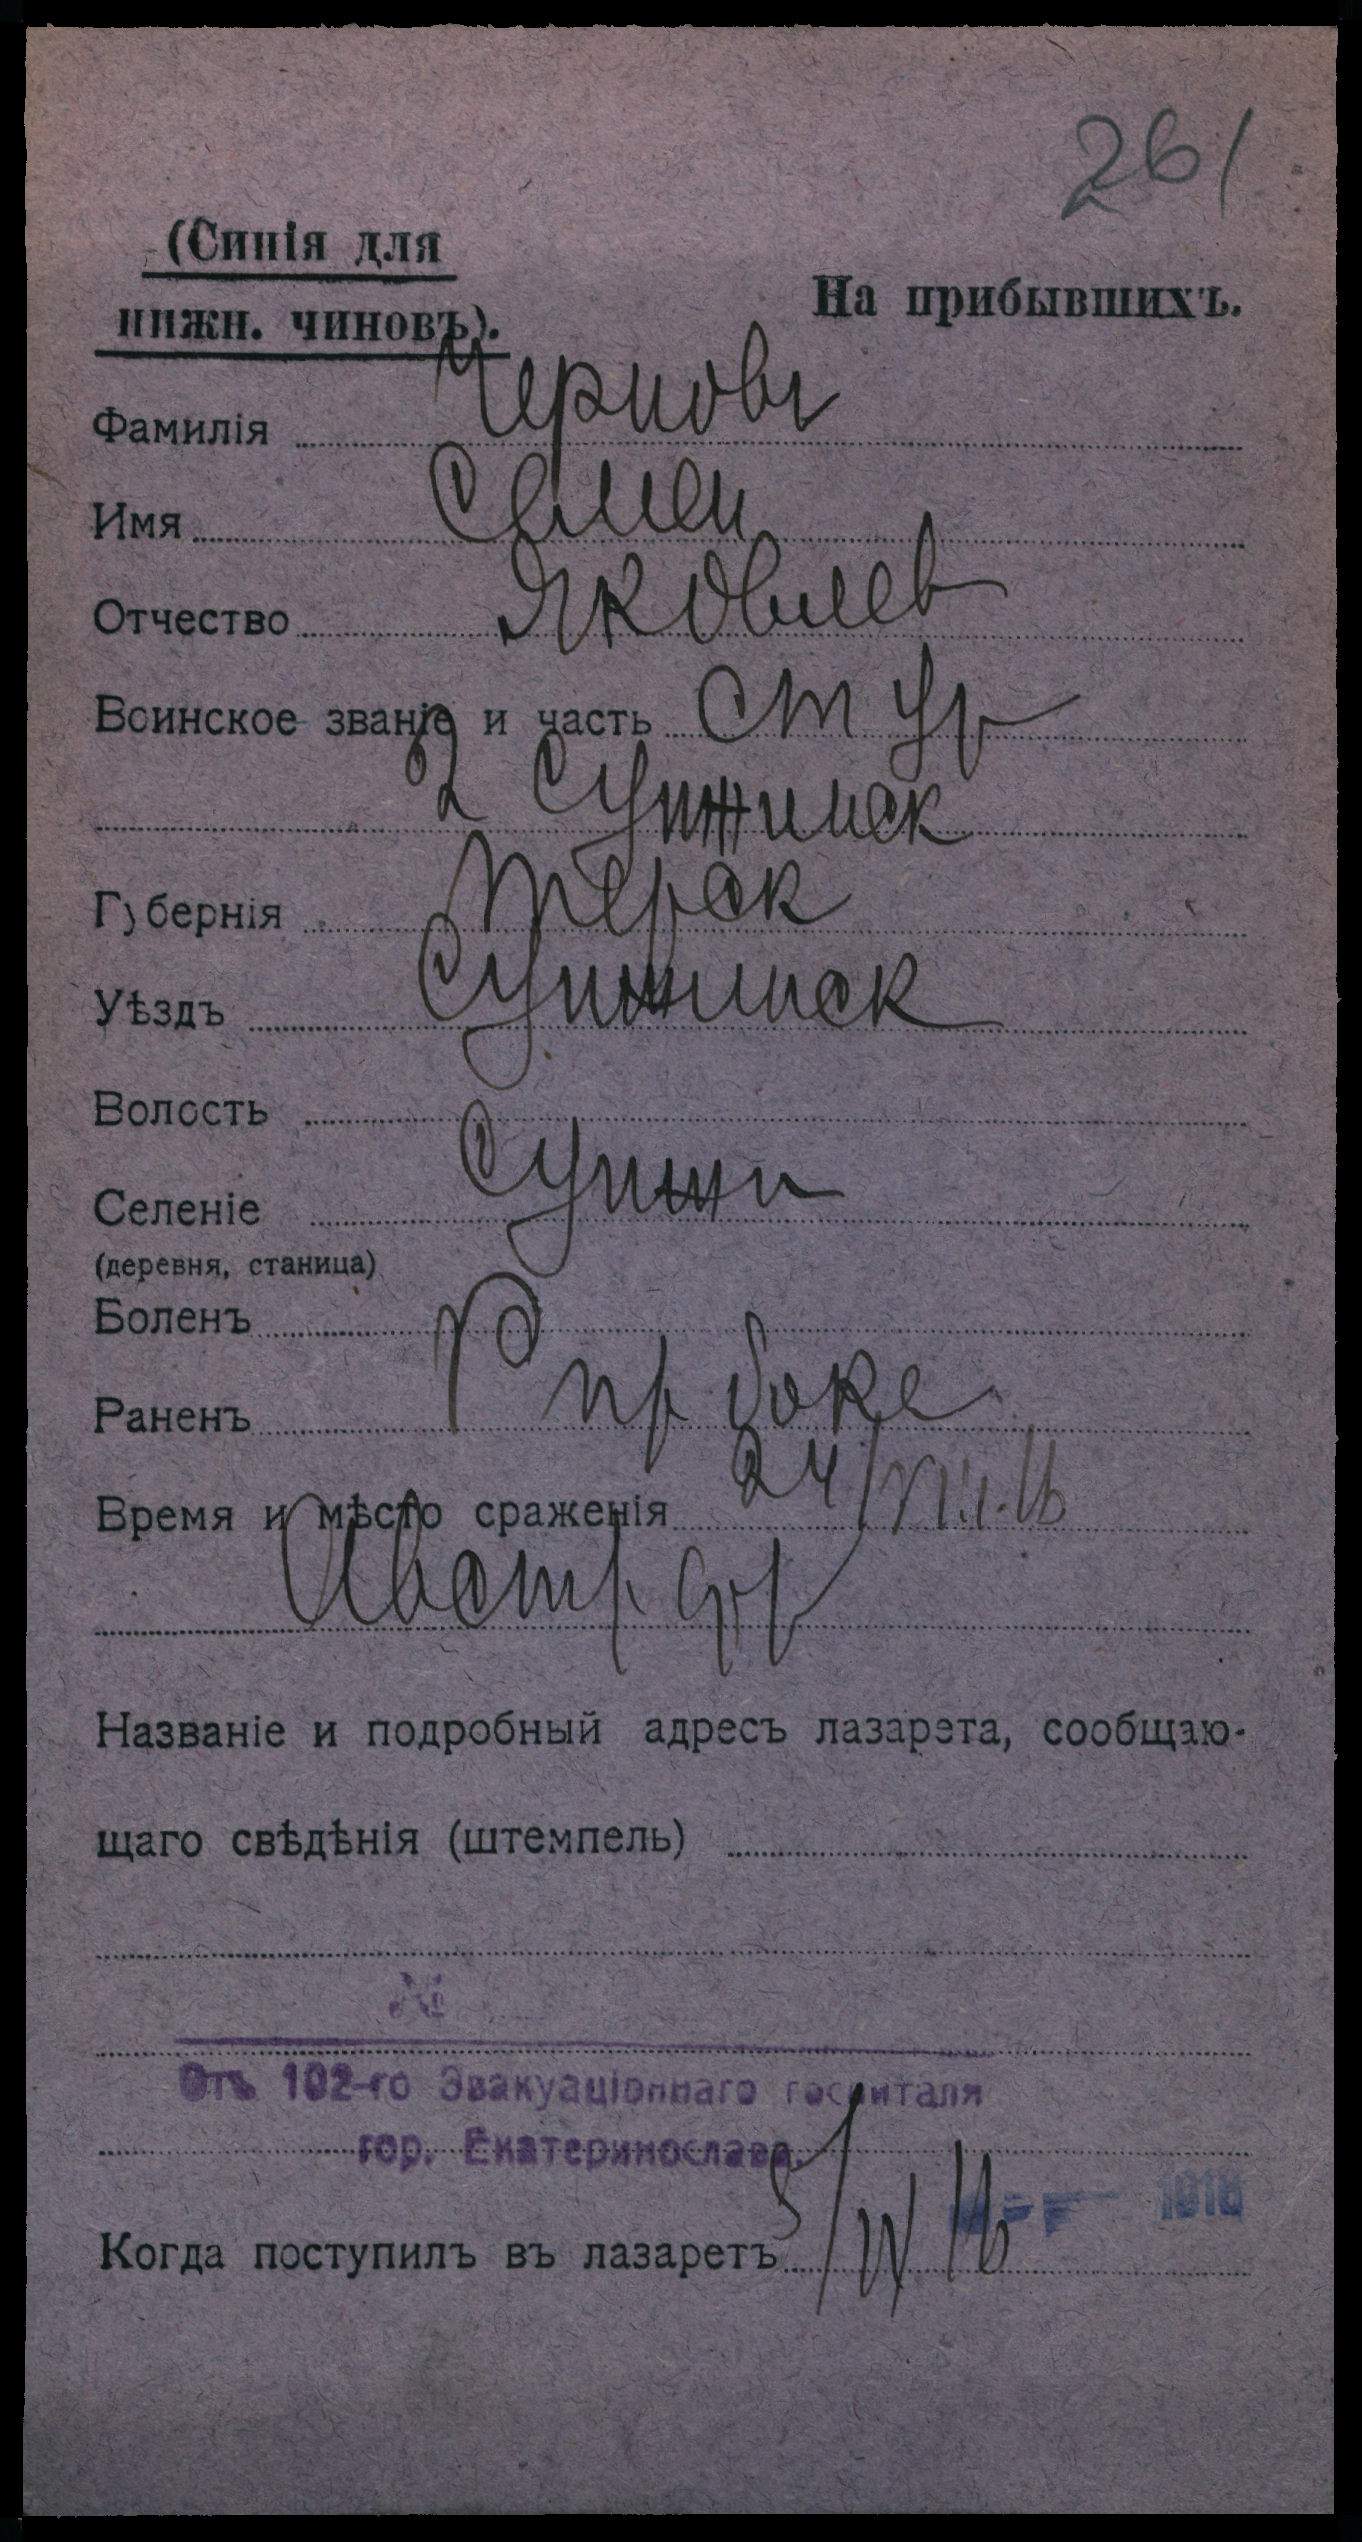 261
(Синія для
нижн. чиновъ).
На прибывшихъ.
Фамилія Черновъ
Имя Семен
Отчество Яковлев
Воинское званіе и часть ст ур
2 Сунжинск
Губернія Терск
Уѣздъ Сунжинск
Волость
Селеніе Сунжи
(деревня, станица)
Боленъ
Раненъ пр боке
Время и мѣсто сраженія 24/VIII.16
Австр фр
Названіе и подробный адресъ лазарета, сообщаю-
щаго свѣдѣнія (штемпель)
№
Отъ 102-го Эвакуаціоннаго госпиталя
гор. Екатеринослава.
1916
Когда поступилъ въ лазаретъ 5/IX 16